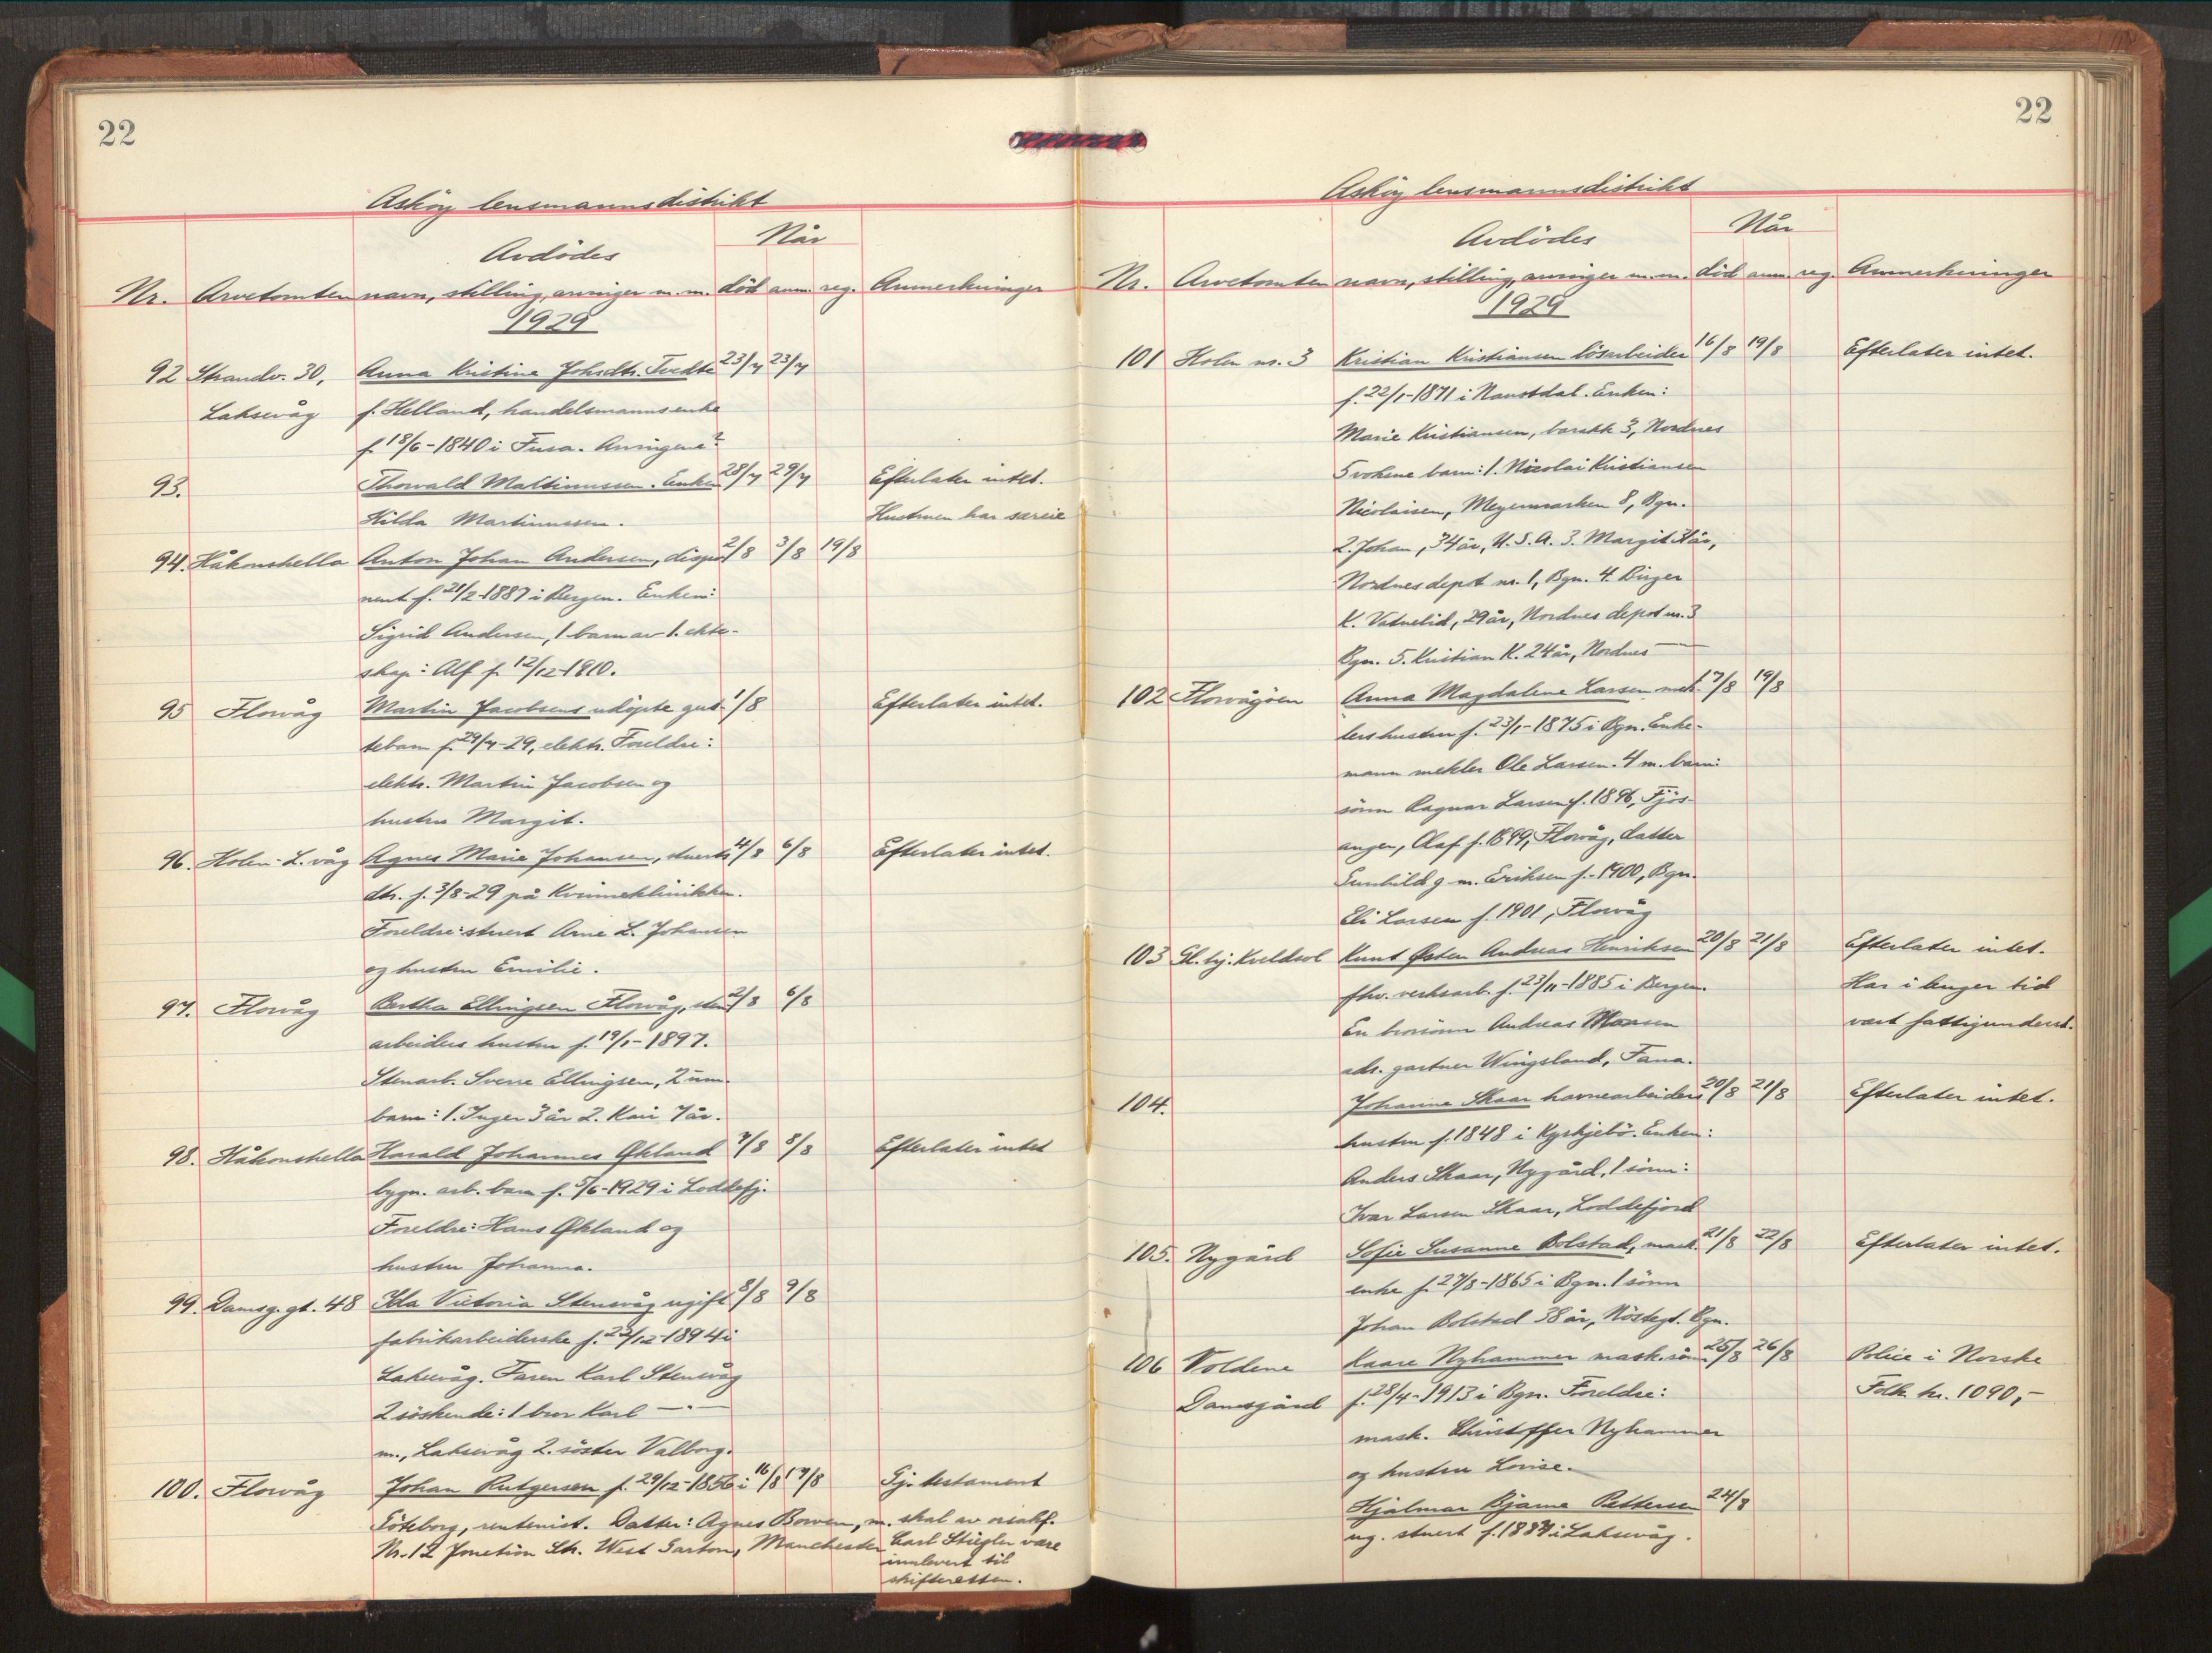 22
Askøy lensmannsdistrikt
Avdødes
Når
Nr. Arvetomten navn, stilling, arvinger m.m. død anm. reg. Anmerkninger
1929
92 Strandv. 30, Anna Kristine Johsdtr. Tvedte 23/7 23/7
Laksevåg f. Helland, handelsmannsenke
f. 18/6-1840 i Fusa. Arvingene?
93. Thorvald Martinussen. Enken 28/7 29/7 Efterlater intet.
Hilda Martinussen. Hustruen har særeie
94. Håkonshella Anton Johan Andersen, dispo- 2/8 3/8 19/8
nent f. 21/2-1887 i Bergen. Enken:
Sigrid Andersen, 1 barn av 1. ekte-
skap: Alf f. 12/12-1910.
95 Florvåg Martin Jacobsens udøpte gut- 1/8 Efterlater intet.
tebarn f. 29/7-29, elektr. Foreldre:
elektr. Martin Jacobsen og
hustru Margit.
96. Holen-L.våg Agnes Marie Johansen, stuerts 4/8 6/8 Efterlater intet.
dtr. f. 3/8-29 på Kvinneklinikken.
Foreldre: stuert Arne L. Johansen
og hustru Emilie.
97. Florvåg Bertha Ellingsen Florvåg, sten- 2/8 6/8
arbeiders hustru f. 19/1-1897.
Stenarb. Sverre Ellingsen, 2 um.
barn: 1. Inger 3 år 2. Kari 7 år.
98. Håkonshella Harald Johannes Økland 7/8 8/8 Efterlater intet
bygn. arb. barn f. 5/6-1929 i Loddefj.
Foreldre: Hans Økland og
hustru Johanna.
99. Damsg. gt. 48 Ida Victoria Stensvåg ugift 8/8 9/8
fabrikarbeiderske f. 22/12-1894 i
Laksevåg. Faren Karl Stensvåg
2 søskende: 1 bror Karl —"—
m., Laksevåg 2. søster Valborg.
100. Florvåg Johan Rutgersen f. 29/12-1856 i 16/8 17/8 Gj. testament
Göteborg, rentenist. Datter: Agnes Bowen, m. skal av o.r.sakf.
Nr. 12 Jonction Str. West Garton, Manchester Carl Stiegler være
innlevert til
skifteretten.
22
Askøy lensmannsdistrikt
Avdødes
Når
Nr. Arvetomten navn, stilling, arvinger m.m. død anm. reg. Anmerkninger
1929
101 Holen nr. 3 Kristian Kristiansen løsarbeider 16/8 19/8 Efterlater intet.
f. 22/1-1871 i Naustdal. Enken:
Marie Kristiansen, barakk 3, Nordnes
5 voksne barn: 1. Nicolai Kristiansen
Nicolaisen, Meyermarken 8, Bgn.
2. Johan, 34 år, U.S.A. 3. Margit Hår,
Nordnes depot nr. 1, Bgn. 4. Birger
K. Vatnelid, 29 år, Nordnes depot nr. 3
Bgn. 5. Kristian K. 24 år, Nordnes —"—
102 Florvågøen Anna Magdalene Larsen mek- 17/8 19/8
lers hustru f. 23/1-1875 i Bgn. Enke-
mann mekler Ole Larsen. 4 m. barn:
sønn Ragnar Larsen f. 1896, Fjøs-
anger, Olaf f. 1899, Florvåg, datter
Gunhild g. m. Eriksen f. 1900, Bgn.
Eli Larsen f. 1901, Florvåg
103 Gl. hj. Kveldsol Knut Østen Andreas Henriksen 20/8 21/8 Efterlater intet.
fhv. verksarb. f. 23/11-1885 i Bergen. Har i lenger tid
En brorsønn Andreas Monsen vært fattigunderst.
adr. gartner Wingsland, Fana.
104. Johanne Skaar havnearbeiders 20/8 21/8 Efterlater intet.
hustru f. 1848 i Kyrkjebø. Enkem:
Anders Skaar, Nygård, 1 sønn:
Ivar Larsen Skaar, Loddefjord
105. Nygård Sofie Susanne Bolstad, mask. 21/8 22/8 Efterlater intet.
enke f. 27/8-1865 i Bgn. 1 sønn
Johan Bolstad 38 år, Nøstegt. Bgn.
106 Voldene Kaare Nyhammer mask. sønn 25/8 26/8 Police i Norske
Damsgård f. 28/4-1913 i Bgn. Foreldre: Folk kr. 1090,-
mask. Christoffer Nyhammer
og hustru Lovise.
Hjalmar Bjarne Pettersen 24/8
ug. stuert f. 1887 i Laksevåg.